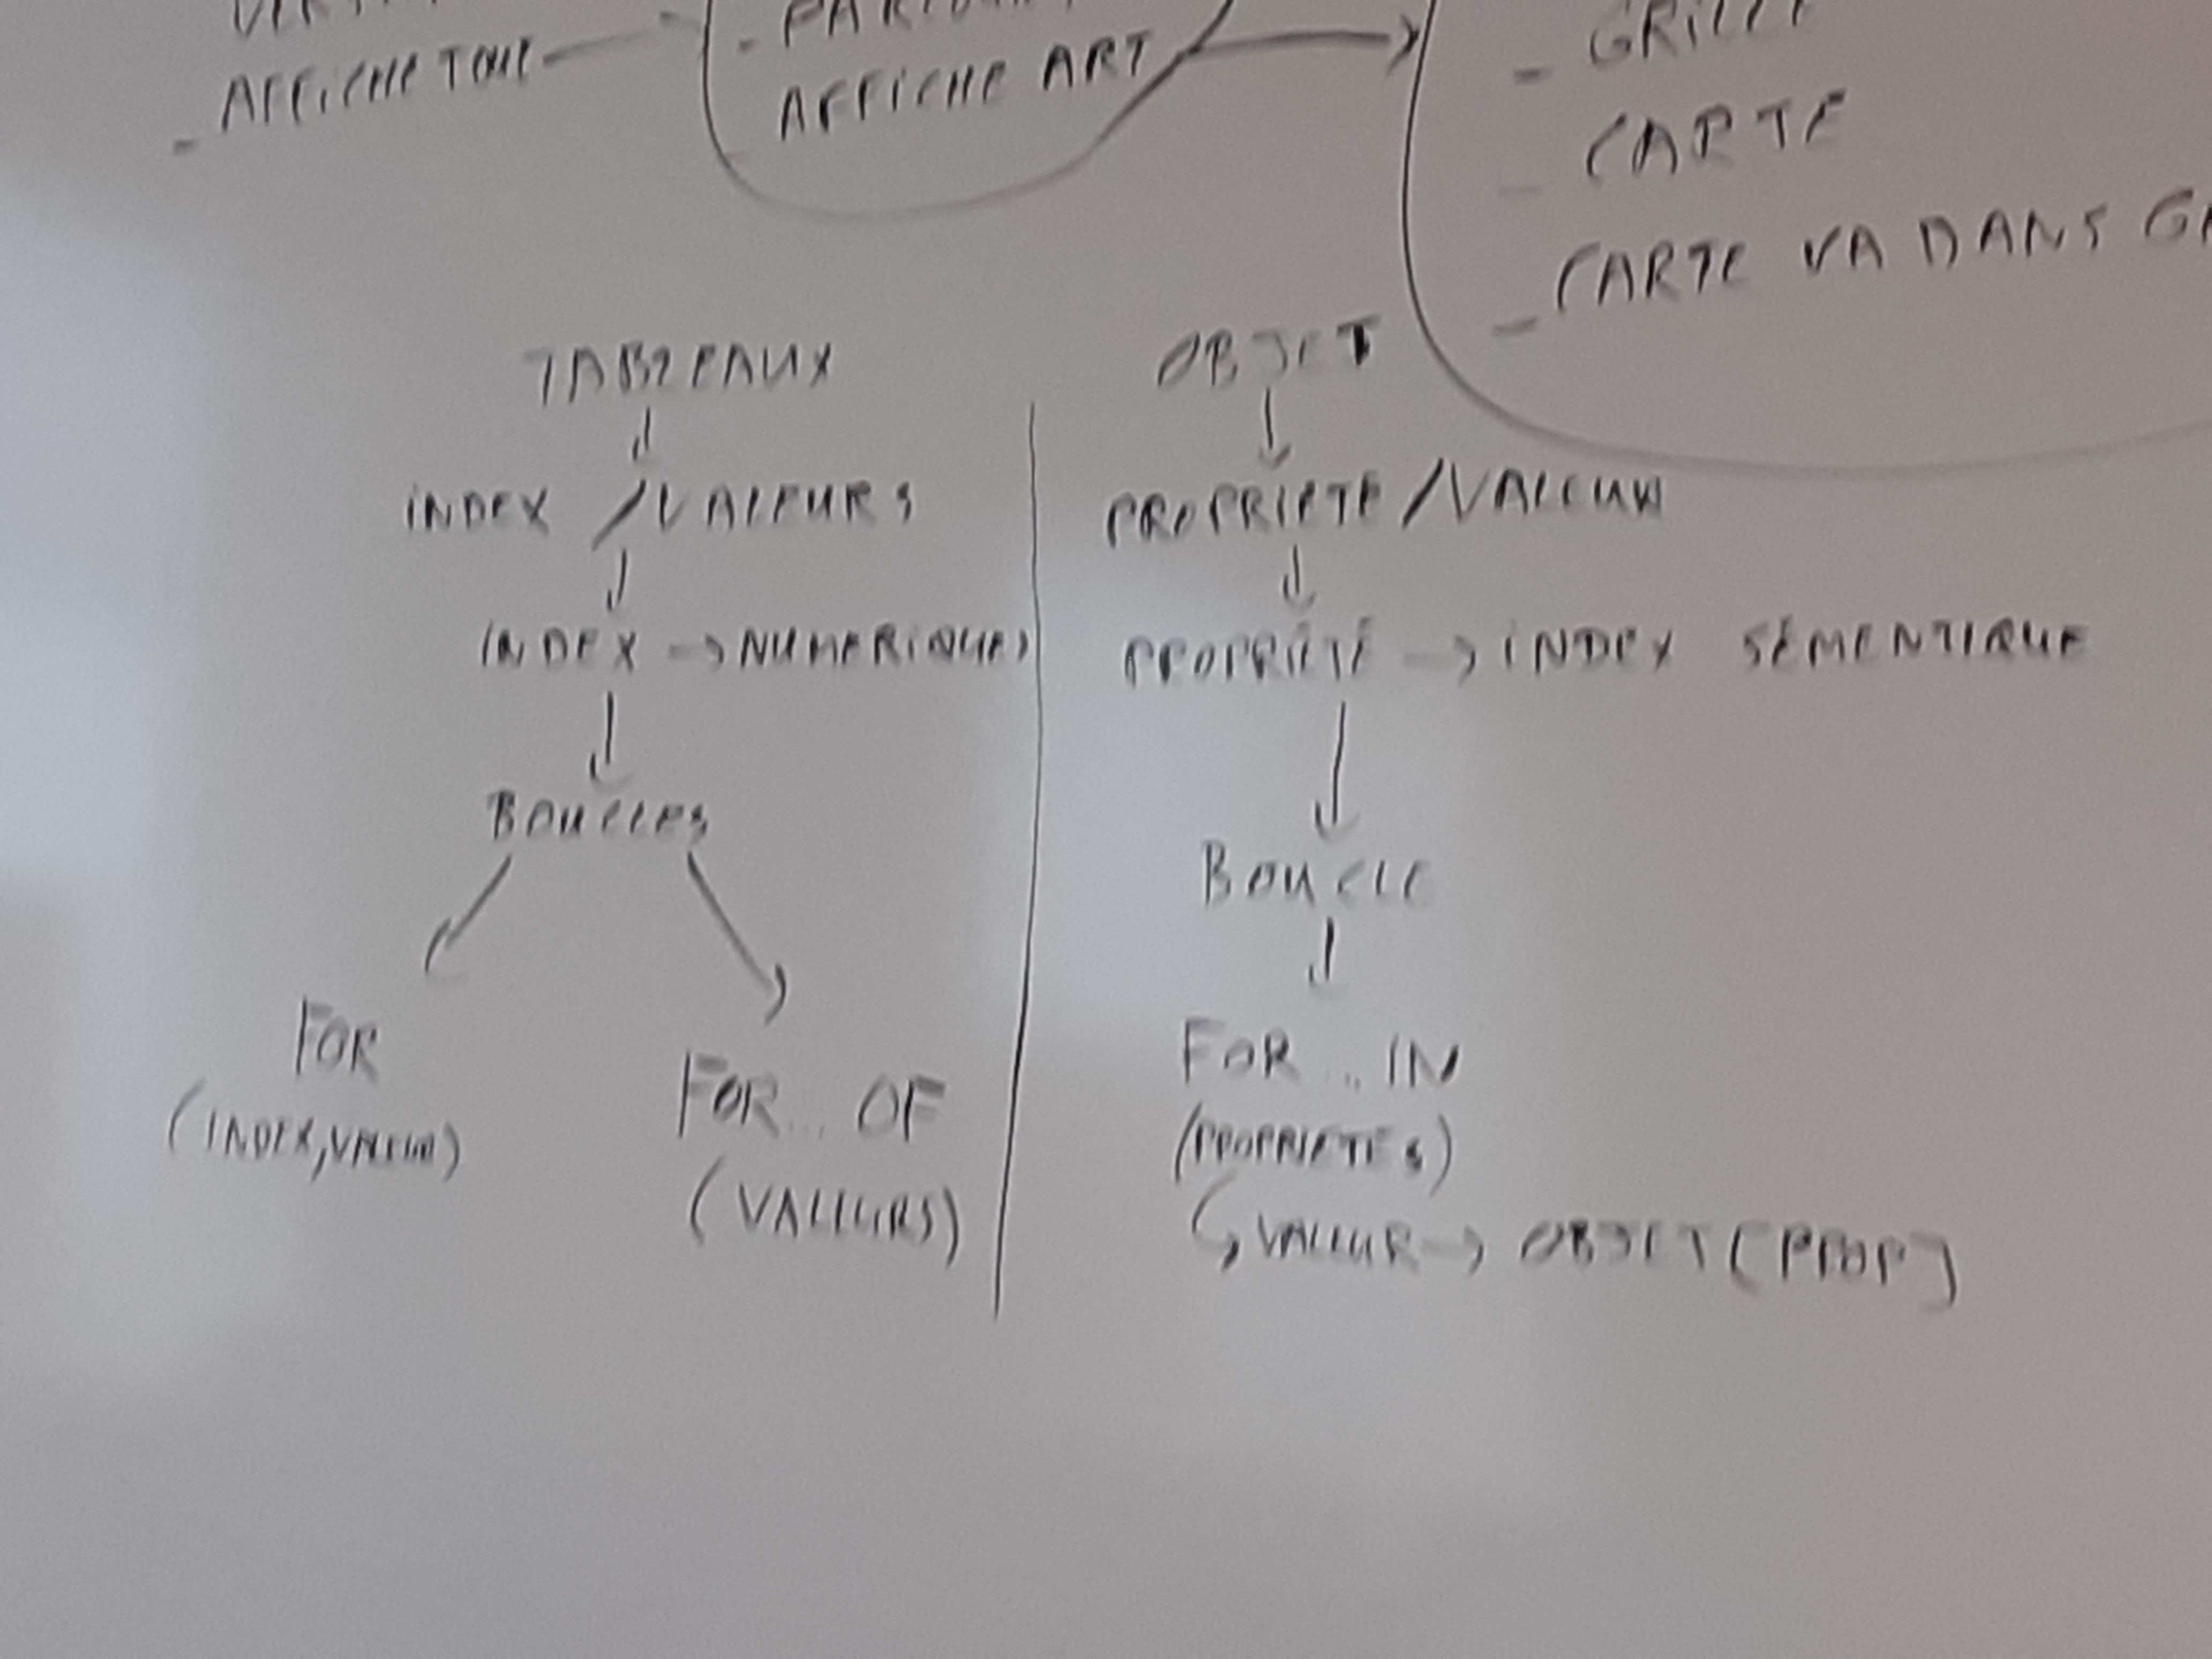 - AFFICHE TOUT
- AFFICHE ART
- GRILLE
- CARTE
- CARTE VA DANS
TABLEAUX
INDEX / VALEURS
INDEX → NUMERIQUES
BOUCLES
FOR
(INDEX, VALEUR)
FOR... OF
(VALEURS)
OBJET
PROPRIETE / VALEUR
PROPRIÉTÉ → INDEX SÉMENTIQUE
BOUCLE
FOR ... IN
(PROPRIETES)
VALEUR → OBJET [PROP]